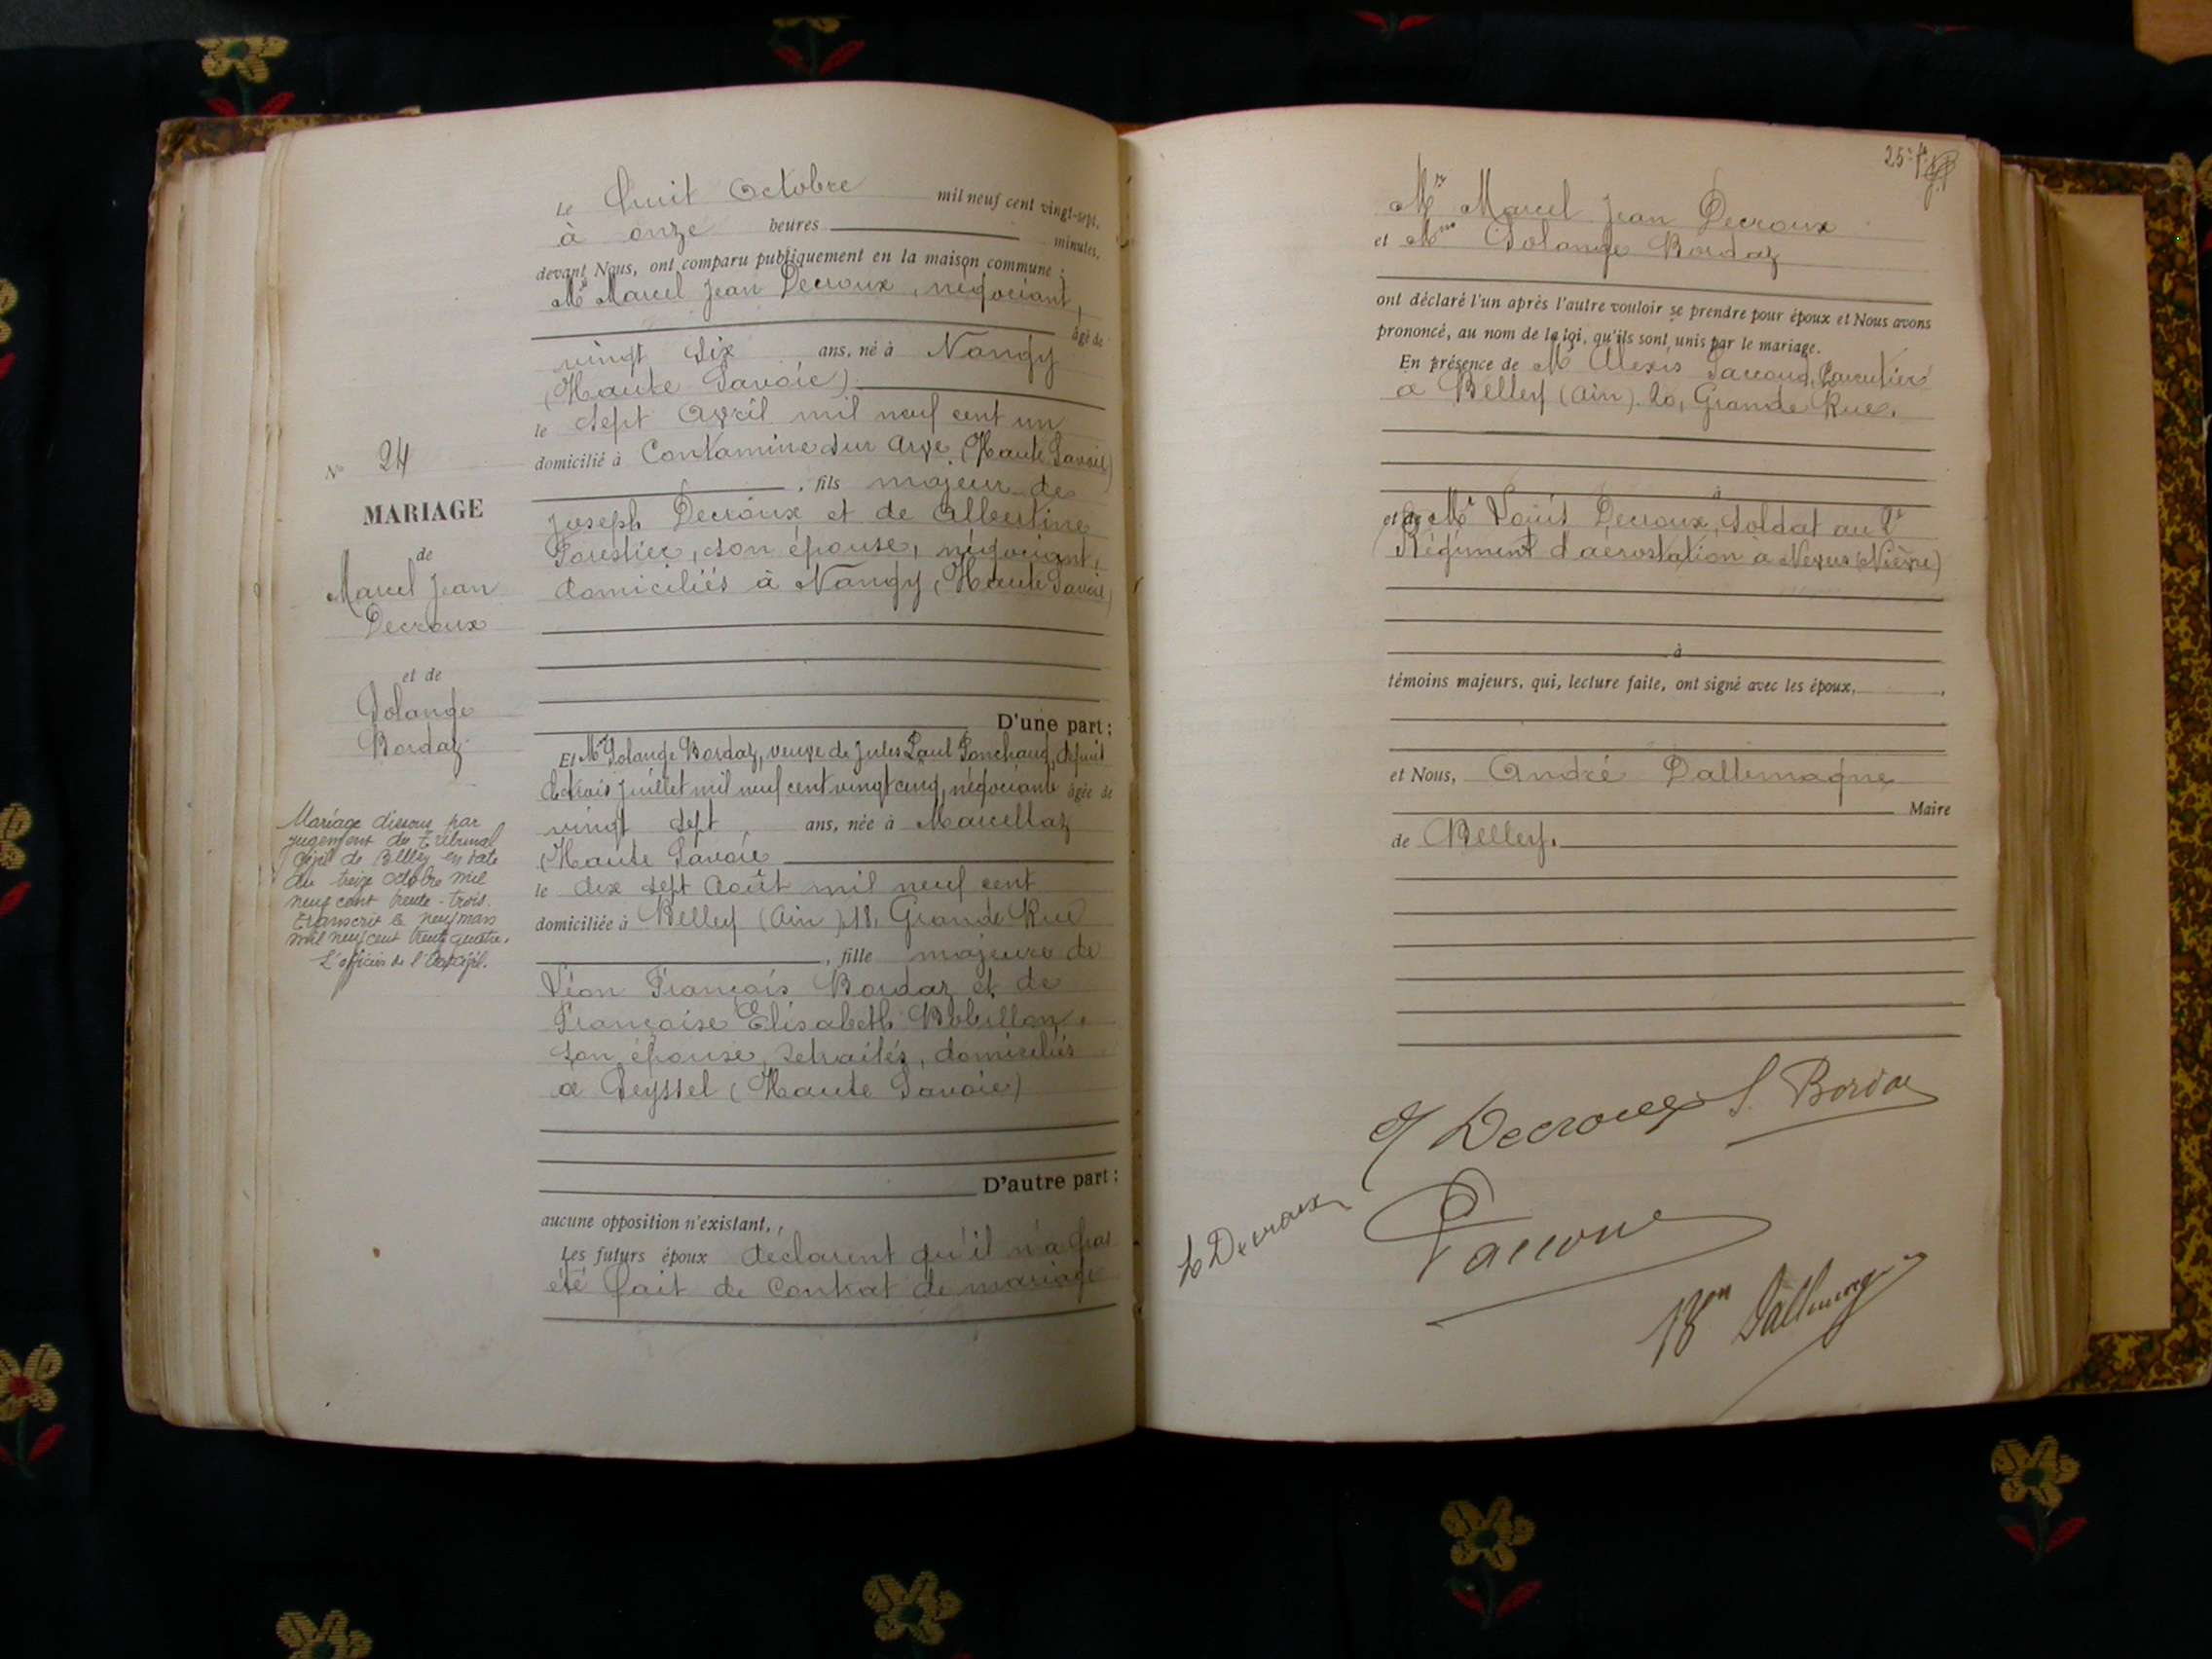 Le huit Octobre mil neuf cent vingt-sept,
à onze heures minutes,
devant Nous, ont comparu publiquement en la maison commune :
Mr Marcel Jean Decroux, négociant,
âgé de
vingt six ans, né à Nangy
(Haute Savoie)
le sept Avril mil neuf cent un
domicilié à Contamine sur Arve (Haute Savoie)
, fils majeur de
Joseph Decroux et de Albertine
Forestier, son épouse, négociant,
domiciliés à Nangy (Haute Savoie)
D'une part ;
Et Mme Solange Bordaz, veuve de Jules Paul Ponchaud, depuis
le trois juillet mil neuf cent vingt cinq, négociante âgée de
vingt sept, ans, née à Marcellaz
(Haute Savoie
le dix sept Août mil neuf cent
domiciliée à Belley (Ain) 18, Grande Rue
, fille majeure de
Léon François Bordaz et de
Françoise Elisabeth
son épouse, retraités, domiciliés
à Seyssel (Haute Savoie)
D'autre part :
aucune opposition n'existant,
Les futurs époux déclarent qu'il n'a pas
été fait de contrat de mariage
No 24
MARIAGE
de
Marcel Jean
Decroux
et de
Solange
Bordaz
Mariage dissous par
jugement du Tribunal
civil de Belley en date
du treize octobre mil
neuf cent trente-trois.
Transcrit le neuf mars
mil neuf cent trente quatre.
L'officier de l'Etat civil.
25e f.
Mr Marcel Jean Decroux
et Mme Solange Bordaz
ont déclaré l'un après l'autre vouloir se prendre pour époux et Nous avons
prononcé, au nom de la loi, qu'ils sont unis par le mariage.
En présence de Mr Alexis
à Belley (Ain) 20, Grande Rue,
à
et de Mr Louis Decroux, soldat au
Régiment d'aérostation à Nevers (Nièvre)
à
témoins majeurs, qui, lecture faite, ont signé avec les époux,
et Nous, André Dallemagne
Maire
de Belley.
Decroux S. Bordaz
L Decroux
Bon Dallemagne